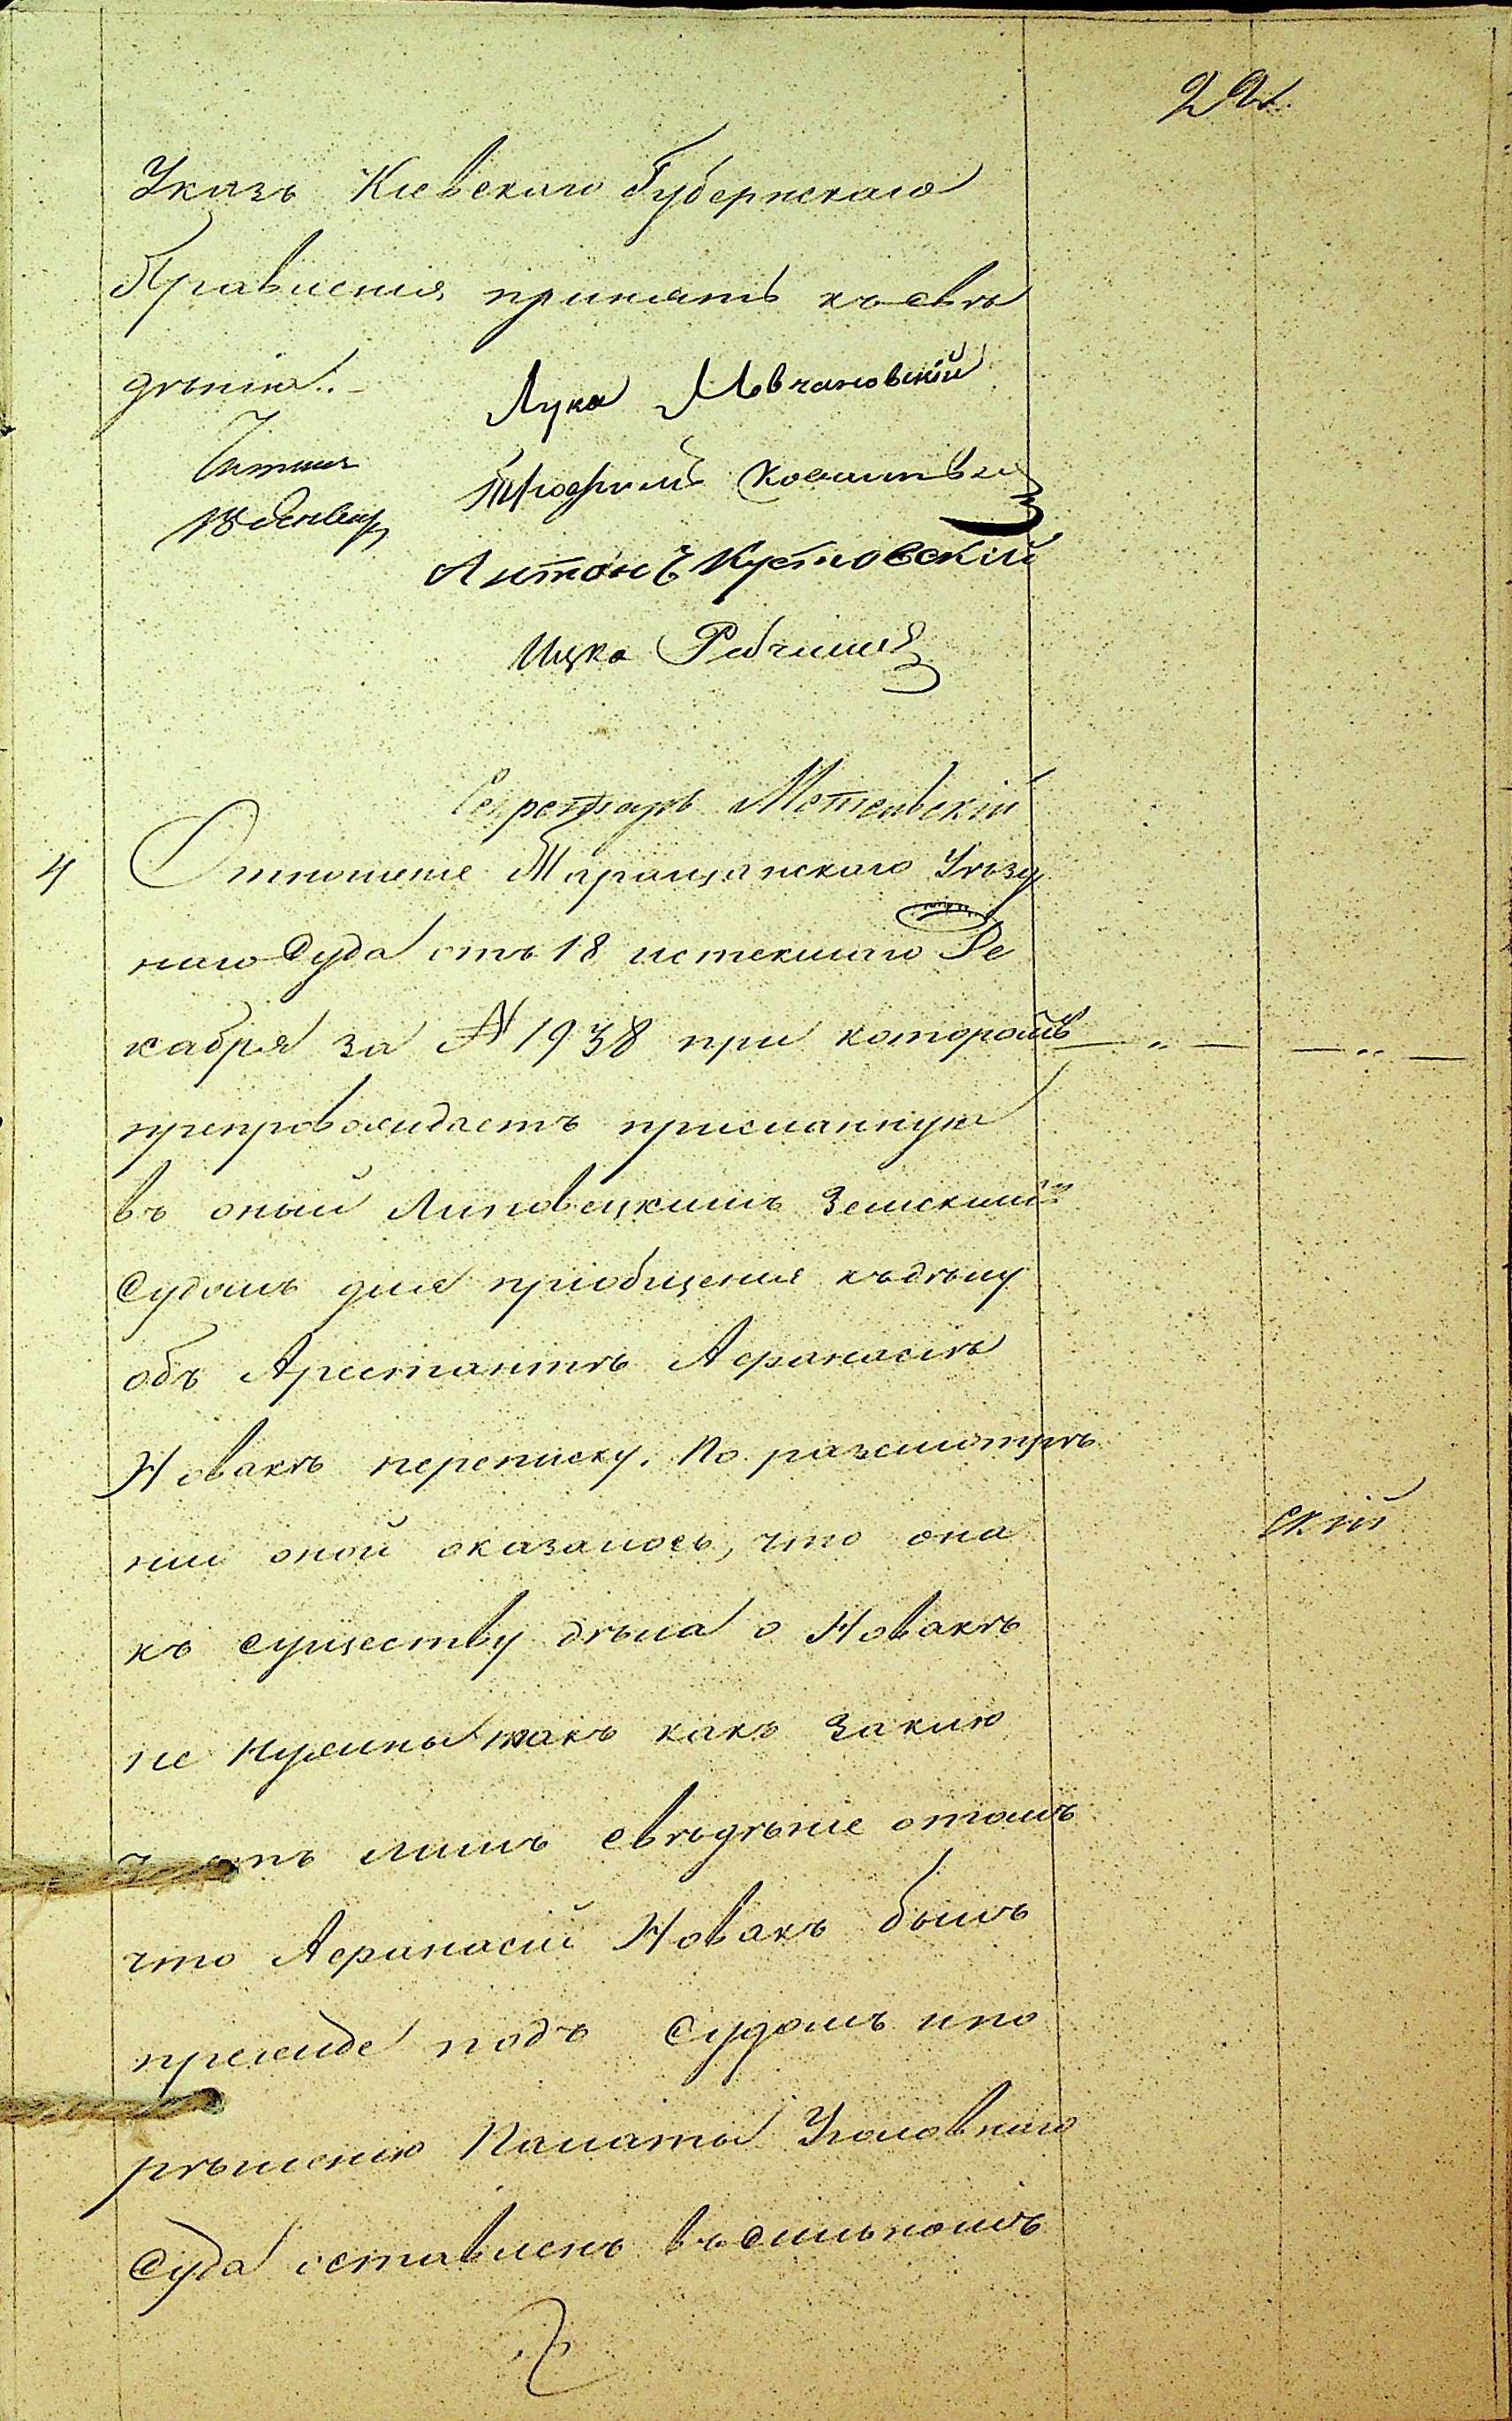 22
Указъ Кіевскаго Губернскаго
Правленія принять къ свѣ
дѣнію.
Лука Мовчановскій
Читалъ
18 Январ
Антонъ Кустовскій
Ицко Рабчин
Секретарь
4
Отношеніе Таращанскаго Уѣзд
наго Суда отъ 18 истекшаго Де
кабря за № 1938 при которомъ
препровождаетъ присланную
въ оный Липовецкимъ Земскимъ
Судомъ для пріобщенія къ дѣлу
объ Арестантѣ Афанасіѣ
Новакѣ переписку. По разсмотрѣ
ніи оной оказалось, что она
къ существу дѣла о Новакѣ
не нужна такъ какъ заклю
чаетъ лишь свѣдѣніе о томъ
что Афанасій Новакъ былъ
прежде подъ Судомъ и по
рѣшенію Палаты Уголовнаго
Суда оставленъ въ сильномъ
скій